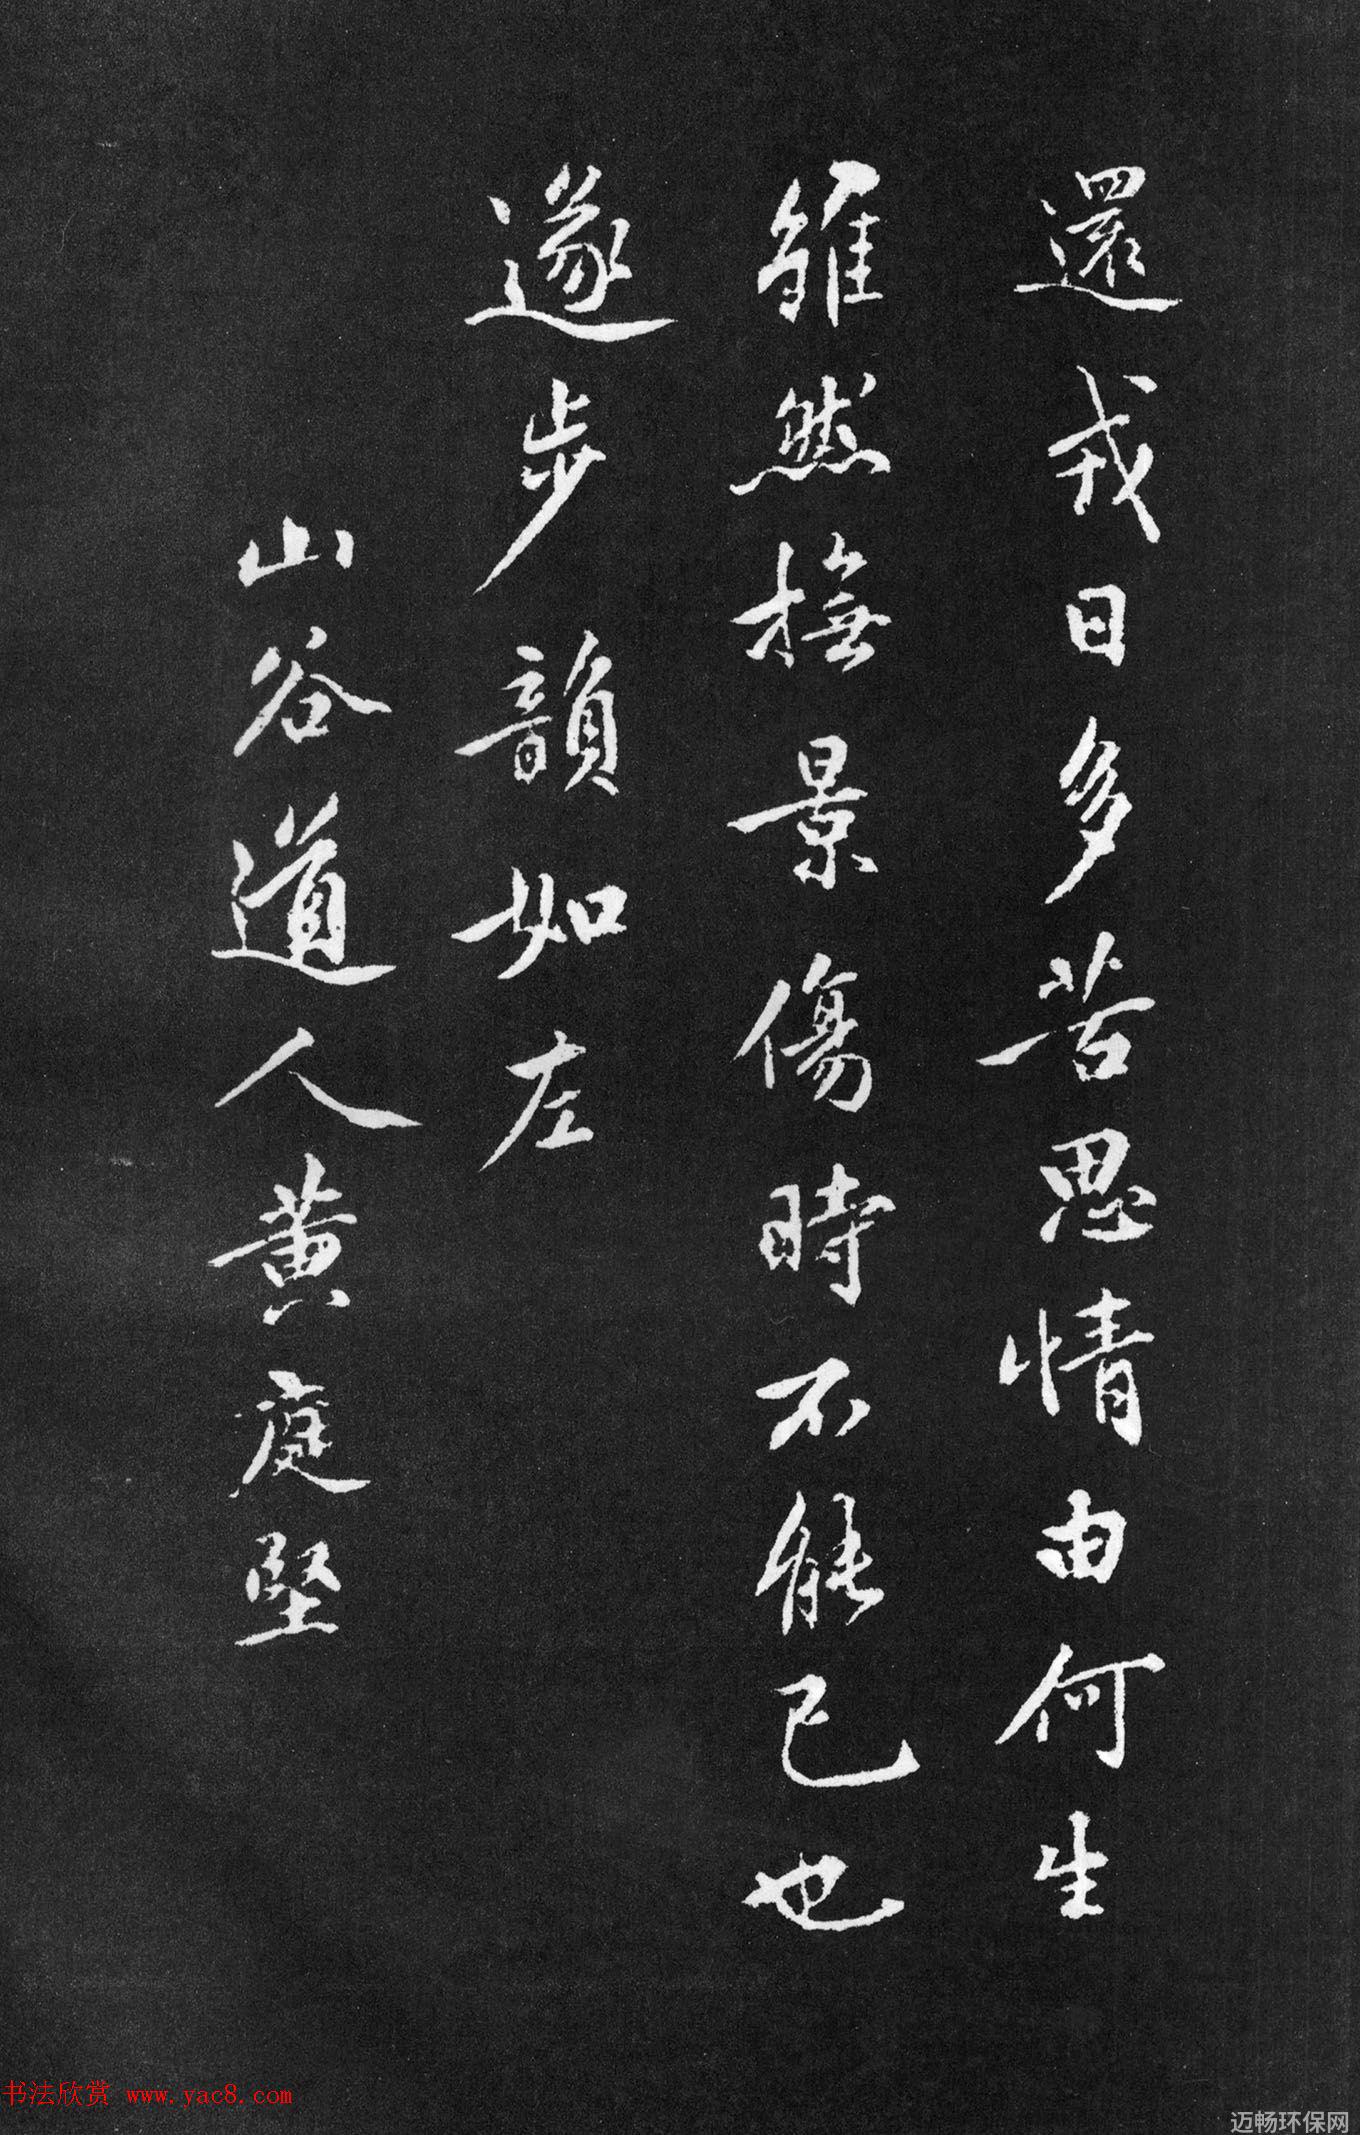 還戎日多苦思情由何生
雖然撫景傷時不能已也
遂步韻如左
山谷道人黄庭堅
书法欣赏 www.yac8.com
迈畅环保网